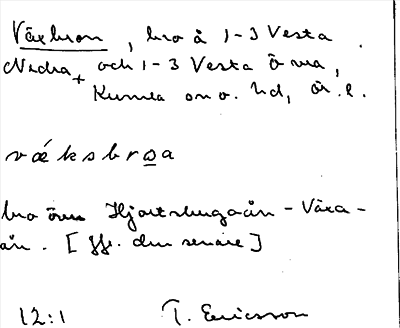 Växbron, bro å 1-3 Vesta
Nedra, och 1-3 Vesta Övra,
Kumla on o. hd, Ör. l.
vǽksbrωa
bro över Hjortshagaån - Växa-
ån. [Jfr. den senare]
12:1 T. Ericsson